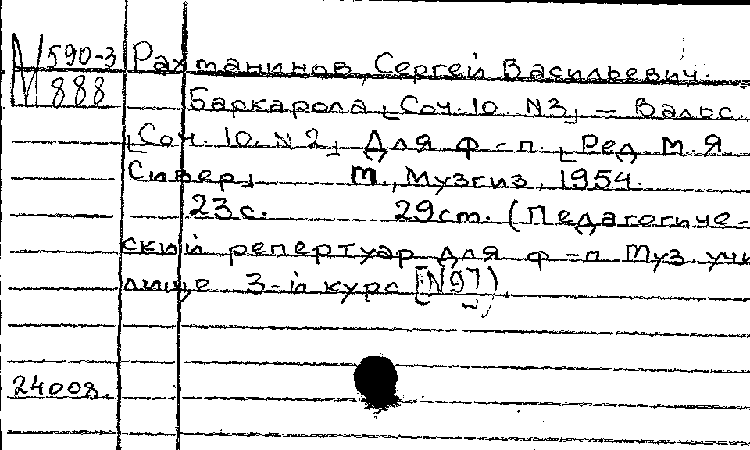 М 590-3 Рахманинов, Сергей Васильевич.
888 Баркарола [Соч. 10. N3] – Вальс
[Соч. 10. N 2] Для ф-п. [Ред. М.Я.
Сивер] М., Музгиз, 1954.
23с. 29ст. (Педагогиче-
ский репертуар для ф-п Муз. учи
лище 3-й курс [N97])
24008.